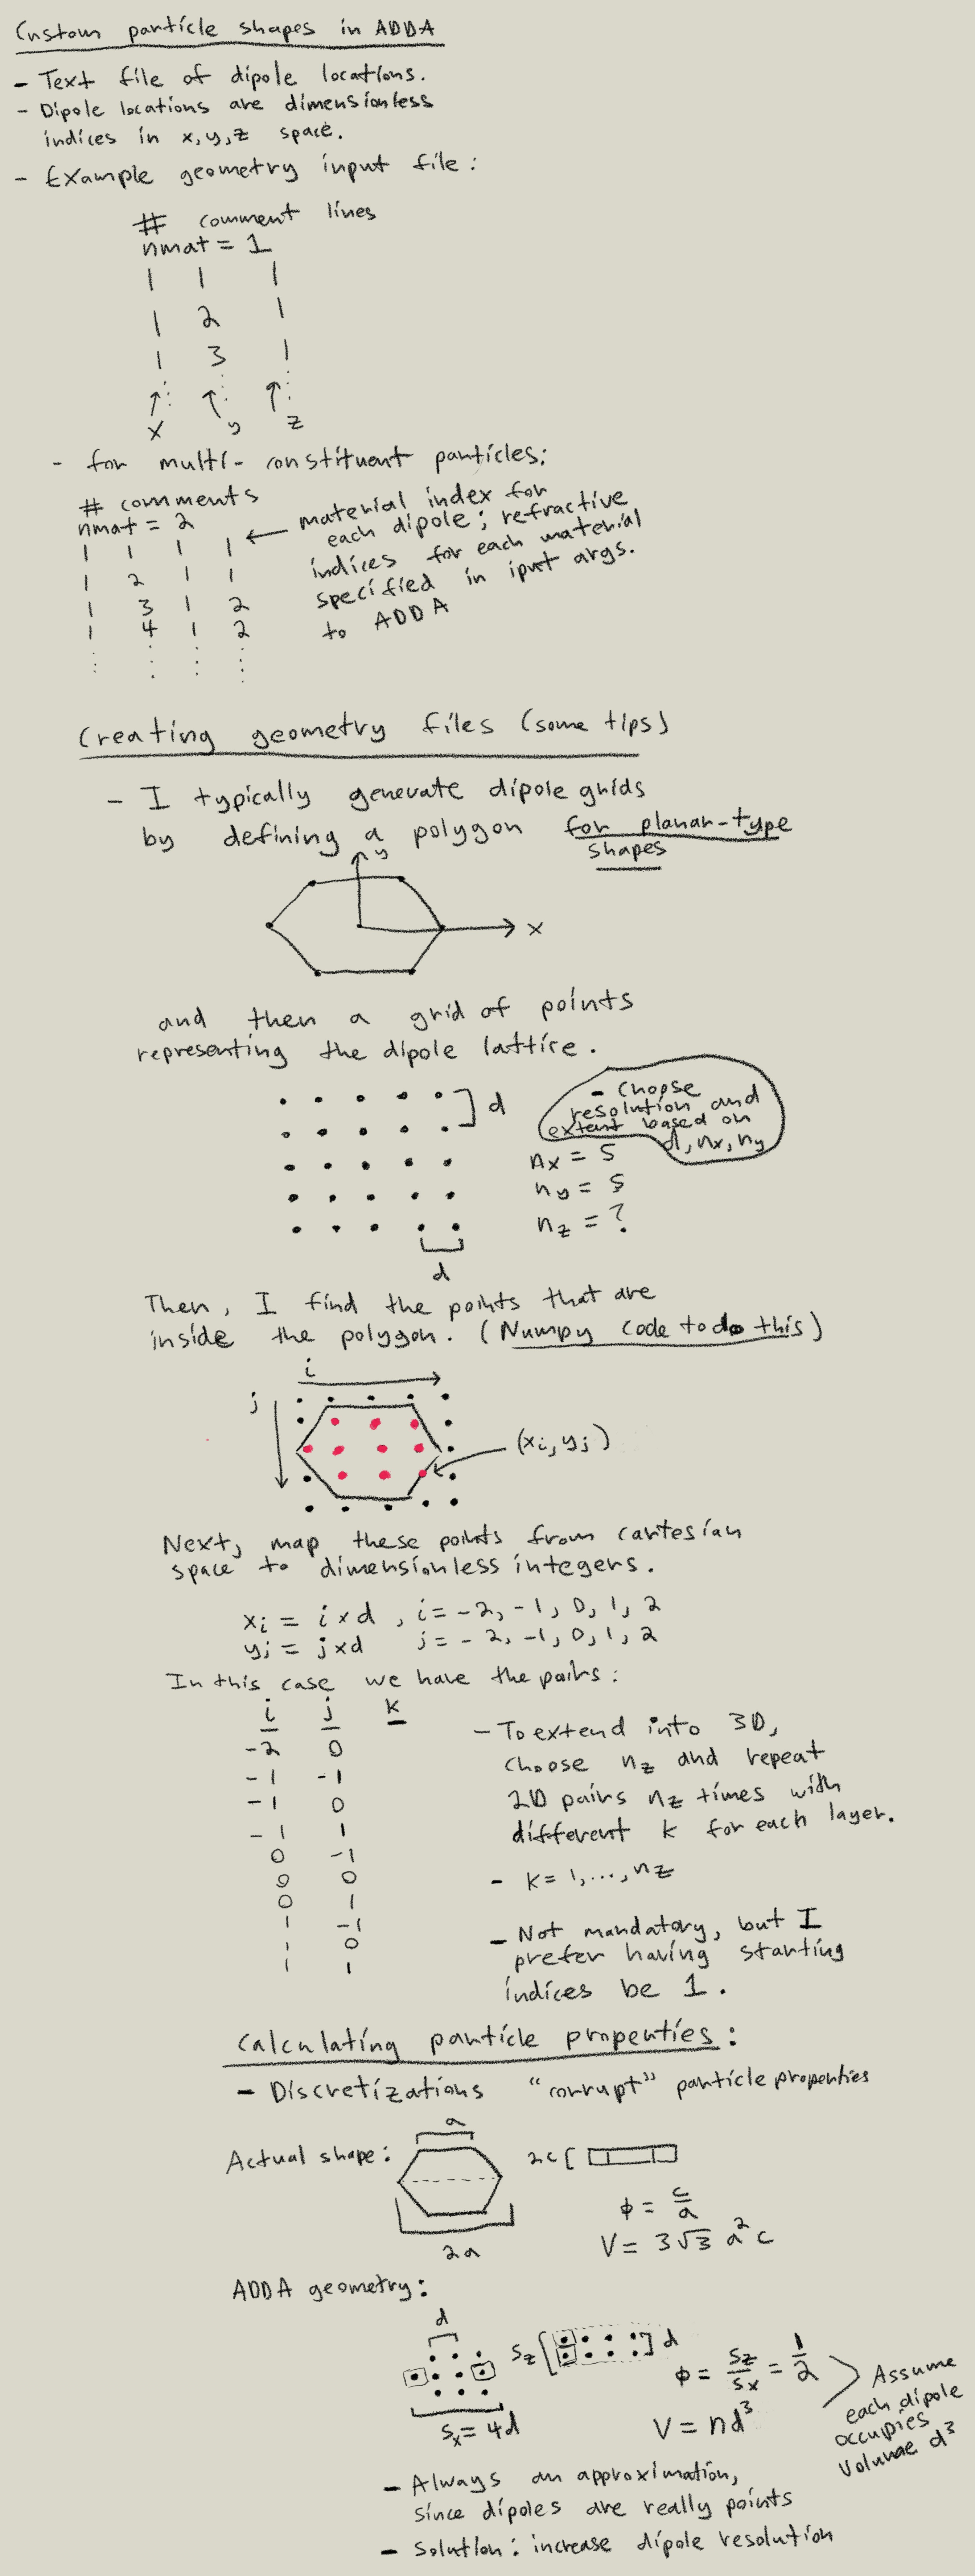 Custom particle shapes in ADDA
- Text file of dipole locations.
- Dipole locations are dimensionless
indices in x,y,z space.
- Example geometry input file:
# comment lines
nmat = 1
1 1 1
1 2 1
1 3 1
x y z
- for multi-constituent particles:
# comments
nmat = 2
1 1 1 1
1 2 1 1
1 3 1 2
1 4 1 2
← material index for
each dipole; refractive
indices for each material
specified in iput args.
to ADDA
Creating geometry files (some tips)
- I typically generate dipole grids
by defining a polygon for planar-type
shapes
y
x
and then a grid of points
representing the dipole lattice.
d
- Choose
resolution and
extent based on
d, nx, ny
nx = 5
ny = 5
nz = ?
d
Then, I find the points that are
inside the polygon. (Numpy code to do this)
i
j
(xi, yj)
Next, map these points from cartesian
space to dimensionless integers.
xi = i×d , i = -2, -1, 0, 1, 2
yj = j×d j = -2, -1, 0, 1, 2
In this case we have the pairs:
i j k
-2 0
-1 -1
-1 0
-1 1
0 -1
0 0
0 1
1 -1
1 0
1 1
- To extend into 3D,
choose nz and repeat
2D pairs nz times with
different k for each layer.
- k = 1, ..., nz
- Not mandatory, but I
prefer having starting
indices be 1.
Calculating particle properties:
- Discretizations "corrupt" particle properties
a
Actual shape:
2c
2a
ϕ = c/a
V = 3√3 a²c
ADDA geometry:
d
sx = 4d
sz
d
ϕ = sz/sx = 1/2
V = nd³
Assume
each dipole
occupies
volumae d³
- Always an approximation,
since dipoles are really points
- Solution: increase dipole resolution